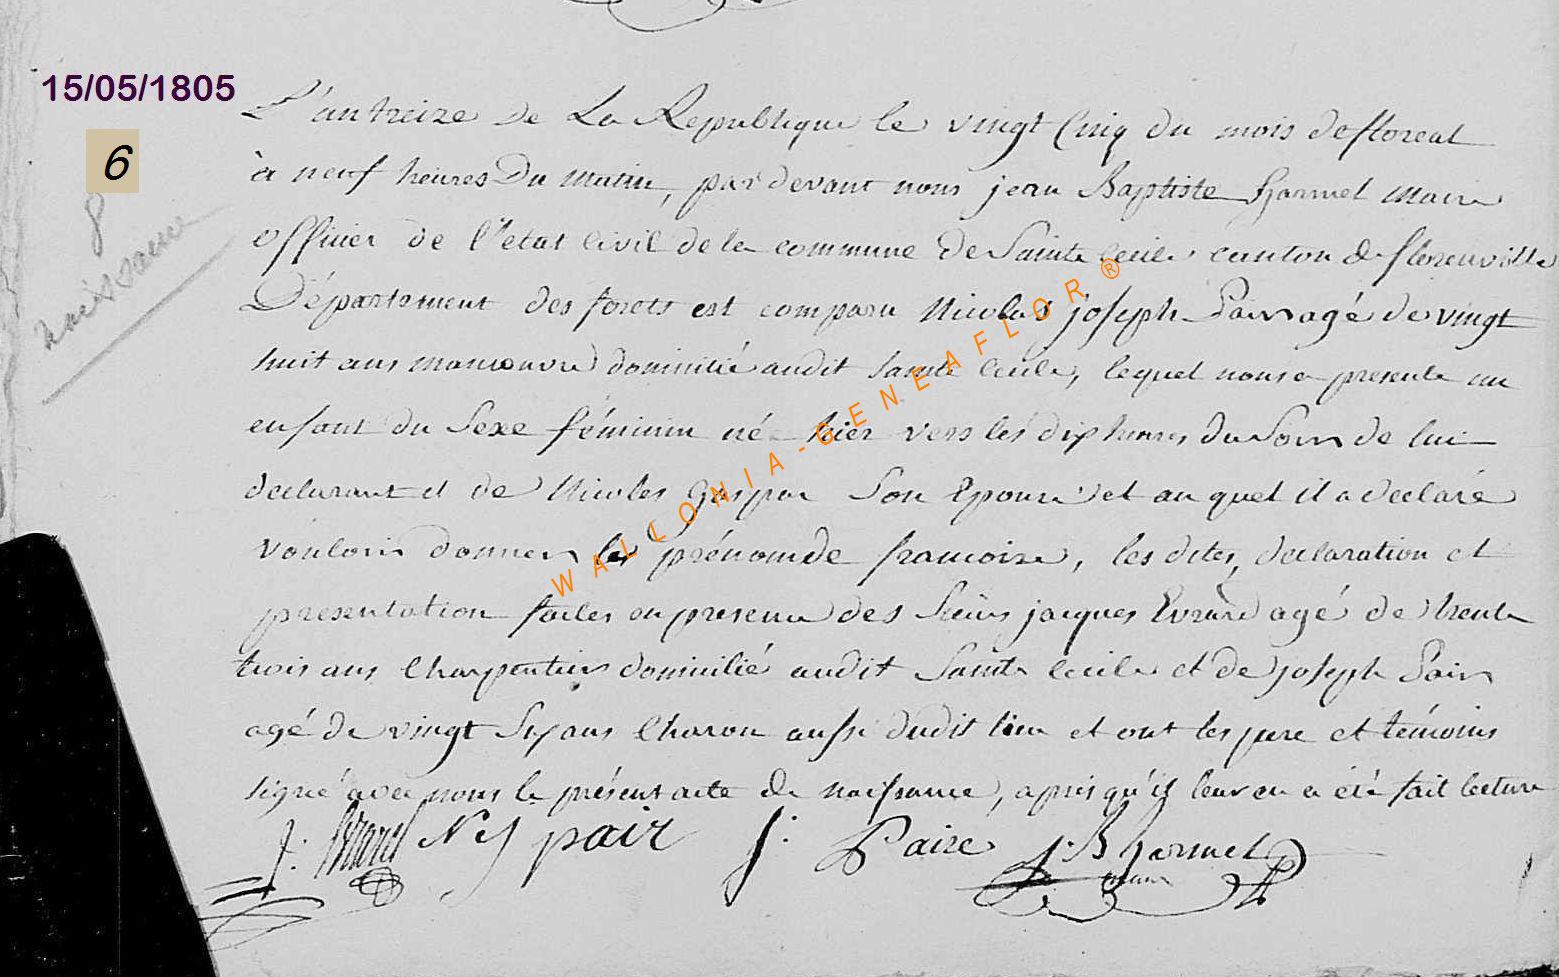 15/05/1805
6
8
naissance
L'an treize de La Republique le vingt Cinq du mois de floreal
à neuf heures Du matin, par devant nous jean Baptiste harmel maire
officier de l'etat Civil de la commune de Sainte Cecile canton de florenville
Département des forets est comparu Nicolas joseph Pair agé de vingt
huit ans manoeuvre domicilié audit Sainte Cecile, lequel nous a presenté un
enfant du Sexe féminin né hier vers les dix heures du Soir de lui
declarant et de Nicoles Gaspar Son Epouse et au quel il a declaré
vouloir donner les prénom de francoise, les dites declaration et
presentation faites en presence des Sieurs jacques Evrard agé de trente
trois ans Charpentier domicilié audit Sainte Cecile et de joseph Pair
agé de vingt Six ans Charon aussi dudit lieu et ont les pere et témoins
signé avec nous le présent acte de naissance, après qu'il leur en a été fait lecture
J: Evrard NJ pair J: Paire J:B harmel
maire
WALLONIA-GENEAFLOR®